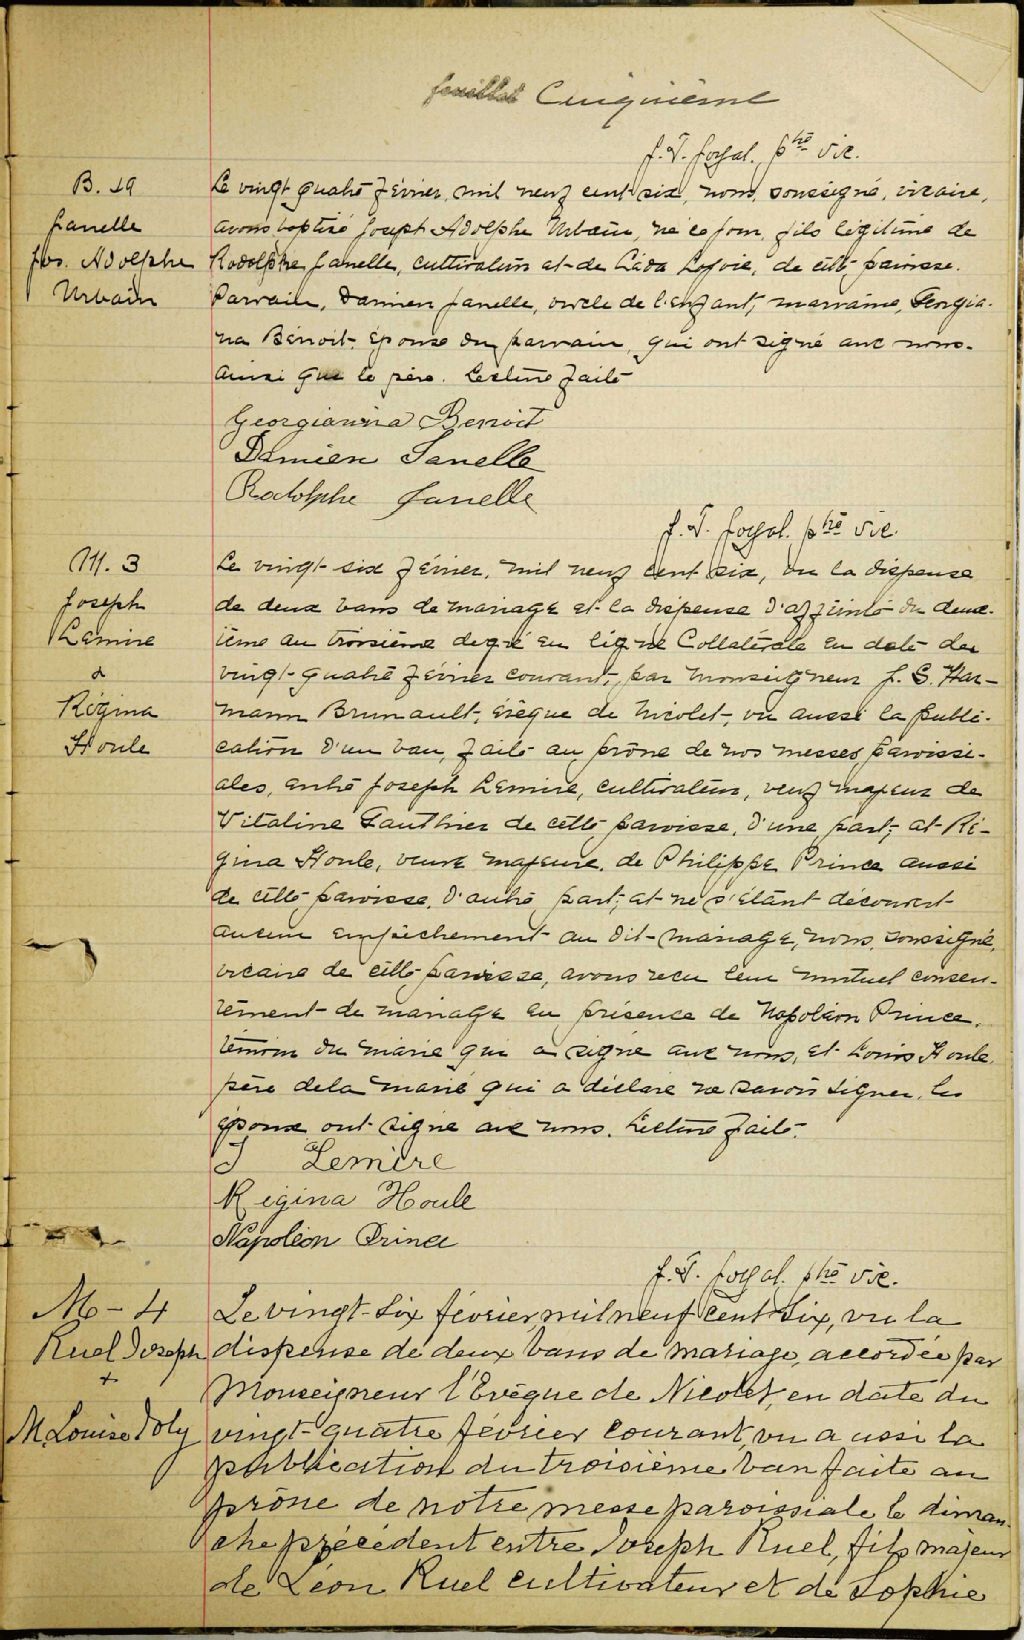 feuillet Cinquième
J. T. Joyal. ptre vic.
B. 19
Janelle
Jos. Adolphe
Urbain
Le vingt quatre février, mil neuf cent six, nous, soussigné, vicaire,
avons baptisé Joseph Adolphe Urbain, né ce jour, fils légitime de
Rodolphe Janelle, cultivateur et de Léda Lafoie, de cette paroisse.
Parrain, Damien Janelle, oncle de l'enfant, marraine, Georgia-
na Bénoit, épouse du parrain, qui ont signé avec nous
ainsi que le père. Lecture faite
Georgianna Benoit
Damien Janelle
Rodolphe Janelle
J. T. Joyal. ptre vic.
M. 3
Joseph
Lemire
&
Régina
Houle
Le vingt-six février, mil neuf cent six, vu la dispense
de deux bans de mariage et la dispense d'affinité du deux-
ième au troisième degré en ligne Collatérale en date du
vingt-quatre février courant, par Monseigneur J. S. Her-
mann Brunault, évêque de Nicolet, vu aussi la publi-
cation d'un ban, faite au prône de nos messes paroissi-
ales, entre Joseph Lemire, cultivateur, veuf majeur de
Vitaline Gauthier de cette paroisse, d'une part, et Ré-
gina Houle, veuve majeure, de Philippe Prince aussi
de cette paroisse, d'autre part, et ne s'étant découvert
aucun empêchement au dit mariage, nous, soussigné,
vicaire de cette paroisse, avons reçu leur mutuel consen-
tement de mariage en présence de Napoléon Prince,
témoin du marié qui a signé avec nous, et Louis Houle,
père de la marié qui a déclaré ne savoir signer. les
époux ont signé avec nous. Lecture faite.
J Lemire
Régina Houle
Napoléon Prince
J. T. Joyal. ptre vic.
M - 4
Ruel Joseph
+
M. Louise Joly
Le vingt-six février, mil neuf cent six, vu la
dispense de deux bans de mariage, accordée par
Monseigneur l'Evêque de Nicolet, en date du
vingt-quatre février courant, vu aussi la
publication du troisième ban faite au
prône de notre messe paroissiale le diman-
che précédent entre Joseph Ruel, fils majeur
de Léon Ruel cultivateur et de Sophie